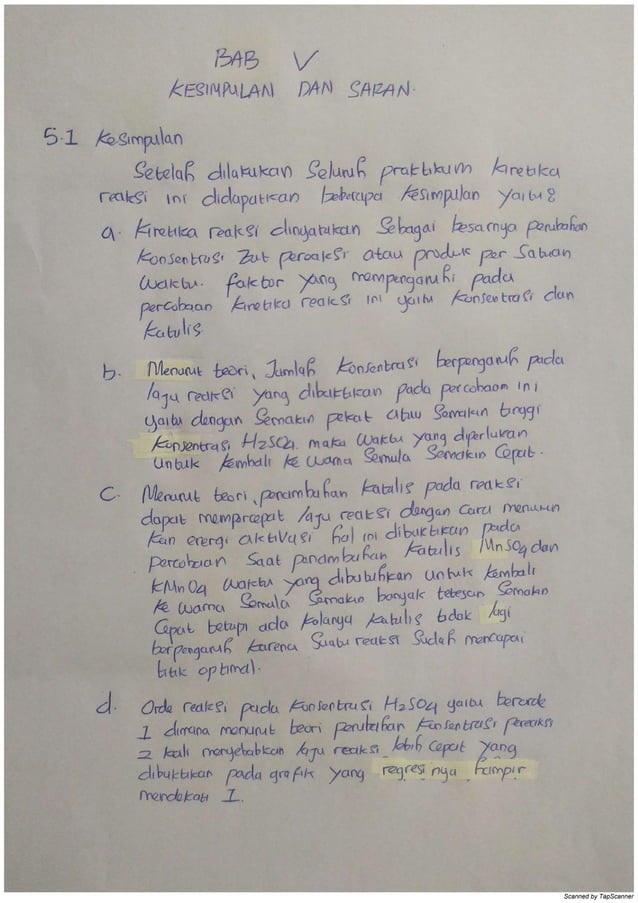 BAB V
KESIMPULAN DAN SARAN.
5.1 Kesimpulan
Setelah dilakukan Seluruh praktikum kinetika
reaksi ini didapatkan beberapa Kesimpulan yaitu:
a. Kinetika reaksi dinyatakan Sebagai besarnya perubahan
Konsentrasi Zat pereaksi atau produk per Satuan
Waktu. faktor yang mempengaruhi pada
percobaan kinetika reaksi ini yaitu Konsentrasi dan
Katalis
b. Menurut teori, Jumlah Konsentrasi berpengaruh pada
laju reaksi yang dibuktikan pada percobaan ini
yaitu dengan Semakin pekat atau Semakin tinggi
Konsentrasi H2SO4. maka Waktu yang diperlukan
untuk kembali Ke Warna Semula Semakin Cepat.
C. Menurut teori, penambahan Katalis pada reaksi
dapat mempercepat laju reaksi dengan Cara menurun
kan energi aktivasi hal ini dibuktikan pada
percobaan Saat penambahan Katalis MnSO4 dan
KMnO4 Waktu yang dibutuhkan untuk kembali
Ke Warna Semula Semakin banyak tetesan Semakin
Cepat tetapi ada Kalanya Katalis tidak lagi
berpengaruh karena Suatu reaksi Sudah mencapai
titik optimal.
d. Orde reaksi pada Konsentrasi H2SO4 yaitu berorde
1 dimana menurut teori perubahan Konsentrasi pereaksi
2 kali menyebabkan laju reaksi lebih Cepat yang
dibuktikan pada grafik yang regresinya hampir
mendekati 1.
Scanned by TapScanner